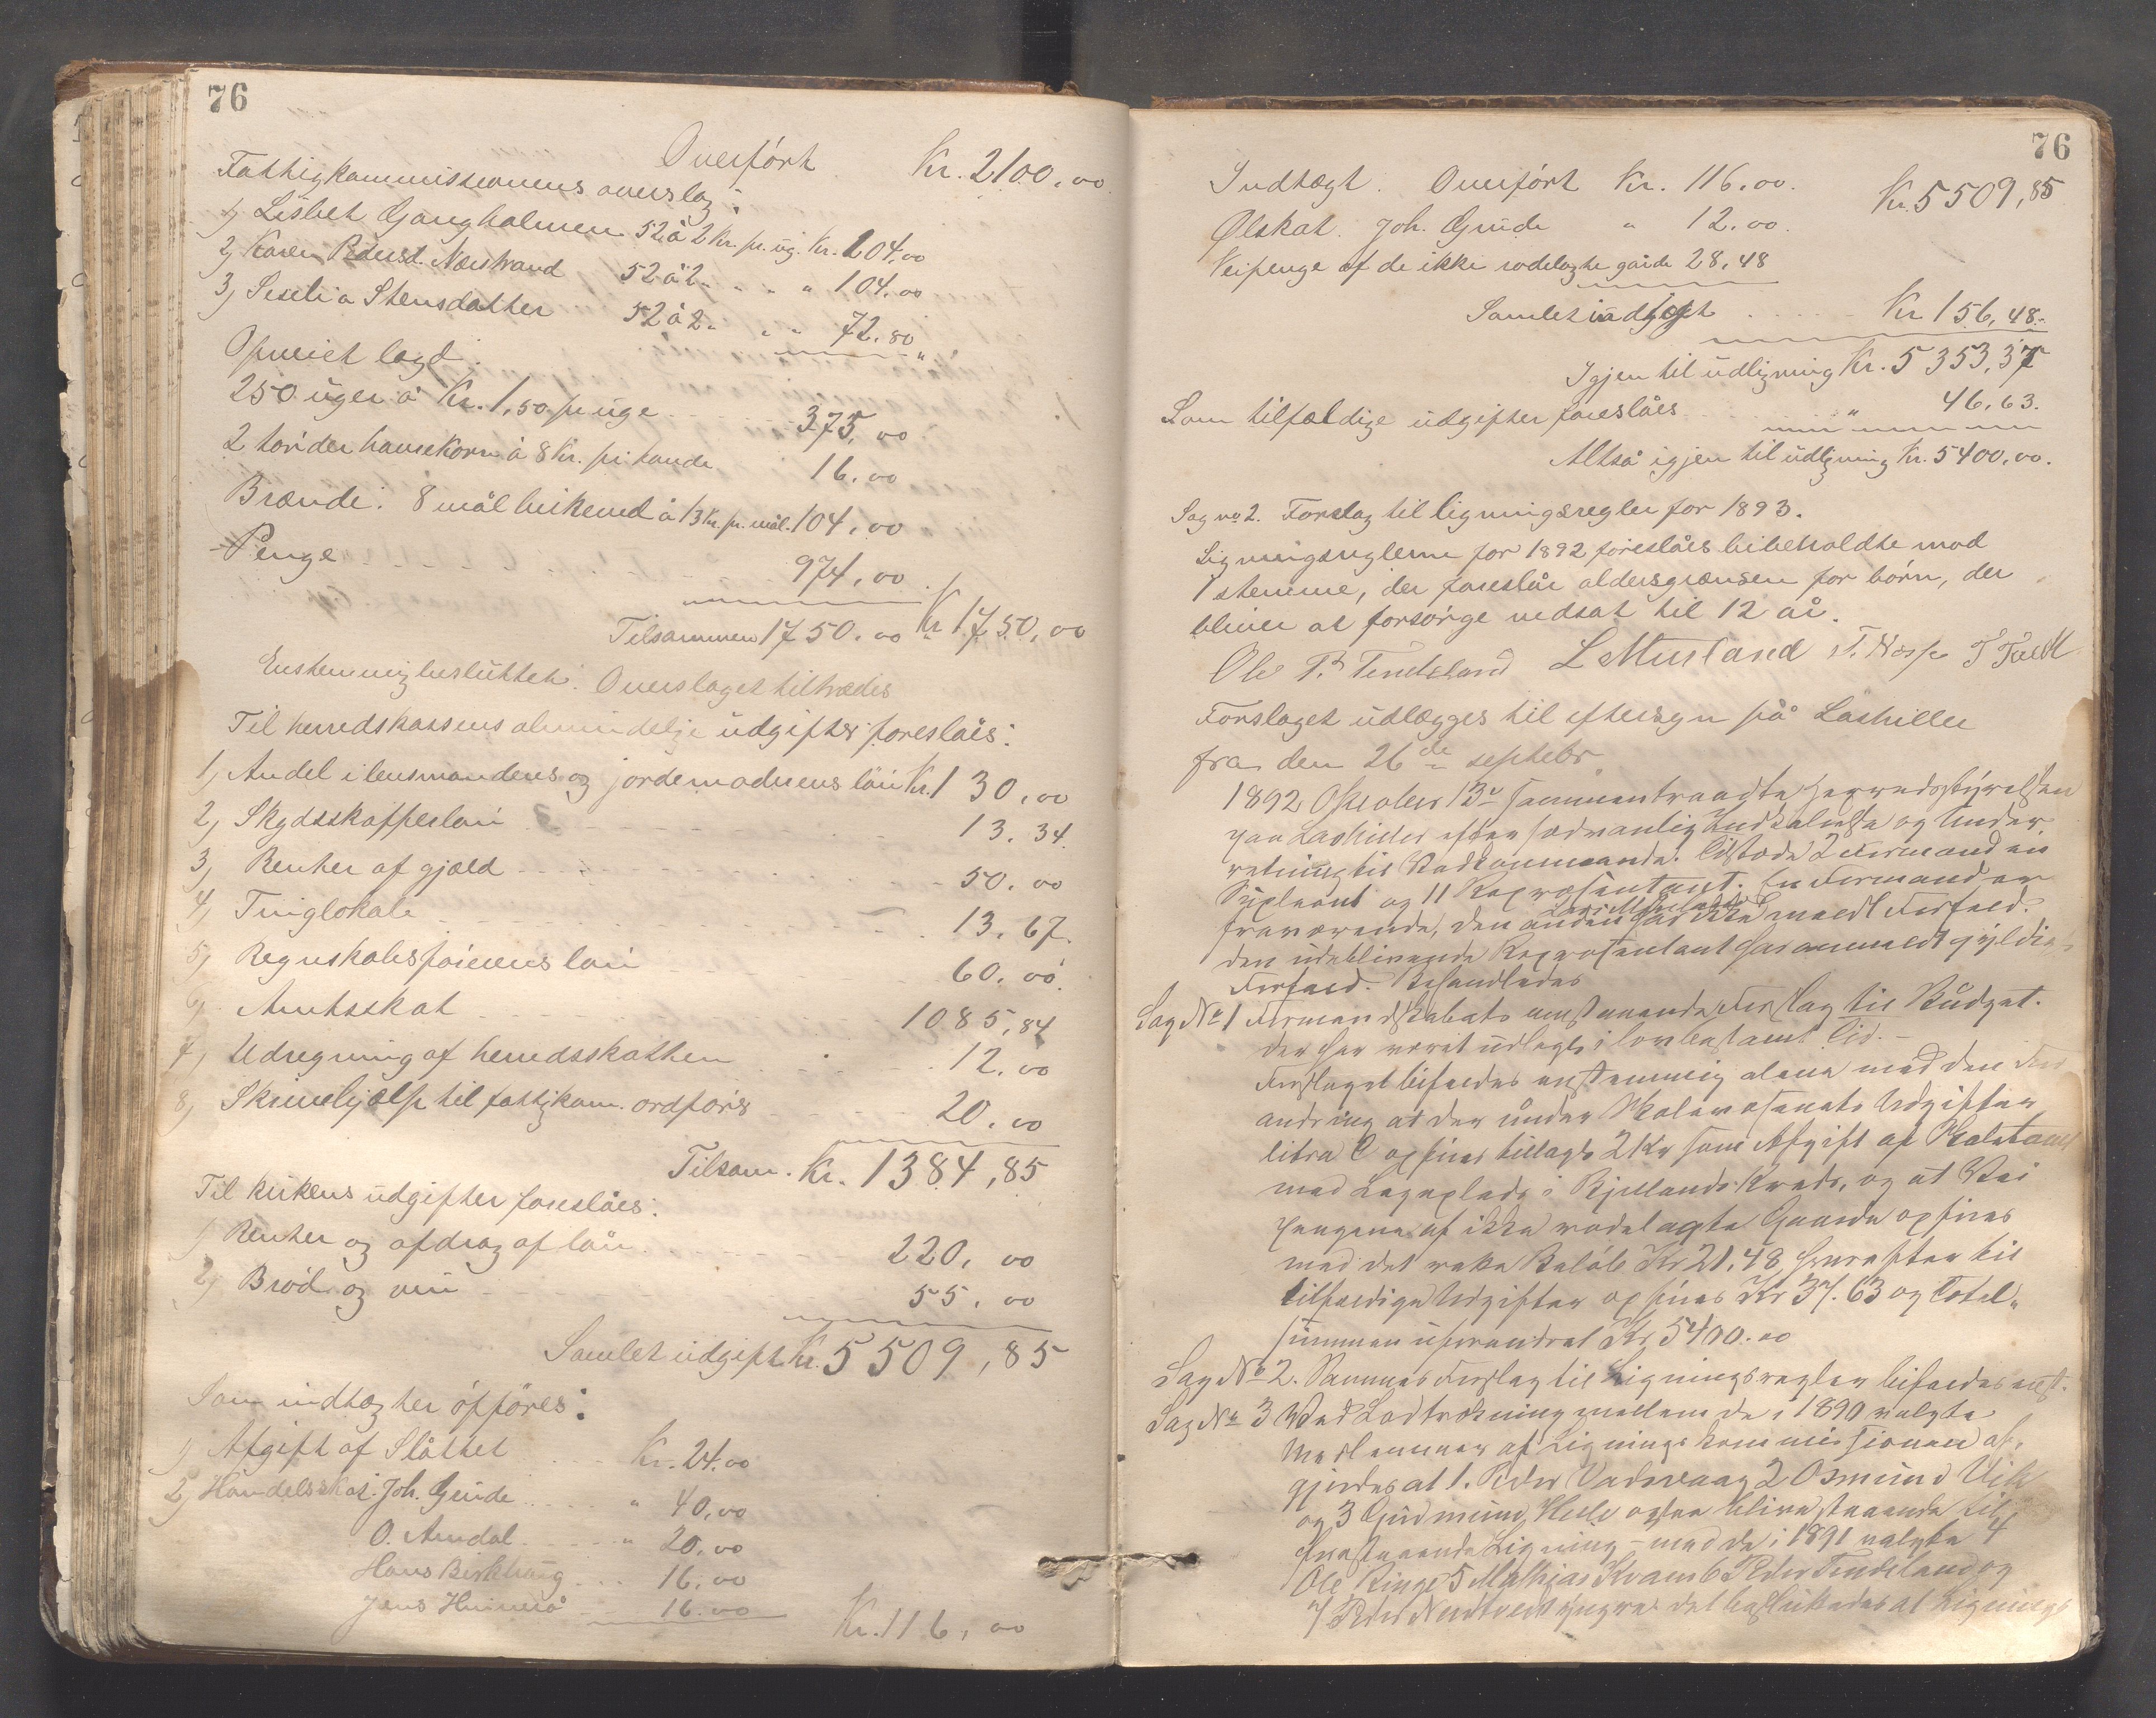 76
Overført Kr. 2100,00.
Fattigkommissionens overslag:
1, Lisbet Gangholmen 52 à 2 Kr. pr. ug. Kr. 104.00
2, Karen Pedersd. Nærstrand 52 à 2 " " " 104.00
3, Seselia Stensdatter 52 à 2 " " " 72.80
Opveiet lægd:
250 uger à Kr. 1,50 pr uge 375,00
2 tønder havrekorn à 8 Kr. pr. tønde 16.00
Brænde: 8 mål birkeved à 13 Kr. pr. mål. 104,00
Penge 974,00
Tilsammen 1750.00 Kr 1750,00
Enstemmig besluttet: Overslaget tiltrædes
Til herredskassens almindelige udgifter foreslåes:
1, Andel i lensmandens og jordemoderens løn Kr. 130,00
2, Skydsskafferløn 13.34.
3, Renter af gjæld 50.00
4, Tinglokale 13.67.
5, Regnskabsførerens løn 60.00.
6, Amtsskat 1085,84
7, Udregning af herredsskatten 12.00
8, Skrivehjælp til fattigkom. ordfører 20.00
Tilsam. Kr. 1384,85
Til kirkens udgifter foreslåes:
1, Renter og afdrag af lån 220,00
2, Brød og vin 55,00
Samlet udgift Kr. 5509,85
Som indtægter opføres:
1, Afgift af Slåttet Kr. 24.00
2, Handelsskat. Joh. Grude " 40,00
O. Amdal " 20.00
Hans Birkhaug 16.00
Jens 16.00
Kr. 116,00
76
Indtægt. Overført Kr. 116.00. Kr. 5509,85
Ølskat. Joh. Grude " 12.00.
Veipenge af de ikke rodelagte gårde 28,48
Samlet indtægt Kr 156,48.
Igjen til udligning Kr. 5353,37
Som tilfældige udgifter foreslåes " 46,63.
Altså igjen til udligning Kr. 5400,00.
Sag no 2. Forslag til ligningsregler for 1893.
Ligningsreglerne for 1892 foreslåes bibeholdte mod
1 stemme, der foreslår aldersgrænsen for børn, der
bliver at forsørge nedsat til 12 år.
Ole P. Tindeland L Musland T. Næss
Forslaget udlægges til eftersyn på Lashiller
fra den 26de septebr.
1892 Oktober 13de sammentraadte Herredsstyrelsen
paa Lashiller efter sædvanlig Indkaldelse og Under-
retning til Vedkommende. Tilstede 2 Formænd en
Supleant og 11 Repræsentant. En Formand er
fraværende, den anden har ikke meldt Forfald.
den udeblivende Repræsentant har anmeldt gyldig
Forfald. Behandledes
Sag No 1 Formandskabets enstemmende Forslag til Budget.
der har været udlagt i lovbestemt Tid.
Forslaget bifaldes enstemmig alene med den For
andring at der under Skolevæsenets Udgifter
litra C opføres tillagt 2 Kr som Afgift af
med i Kjellands Kreds, og at Vei
pengene af ikke rodelagte Gaarde opføres
med det rette Beløb Kr 21,48 hvorefter til
tilfældige Udgifter opføres Kr 37.63 og Total-
summen uforandret Kr 5400.00
Sag No 2. Sammes Forslag til Ligningsregler bifaldes enst.
Sag No 3 Ved Lodtrækning mellem de i 1890 valgte
Medlemmer af Ligningskommissionen af-
gjordes at 1. Peder Vadsvaag 2 Osmund Vik
og 3 Gudmund Helle ogsaa blive staaende til
forestaaende Ligning - med de i 1891 valgte 4
Ole Ringe 5 Mathias Kvame 6 Peder Tindeland og
7 Peder yngre. det besluttedes at Lignings